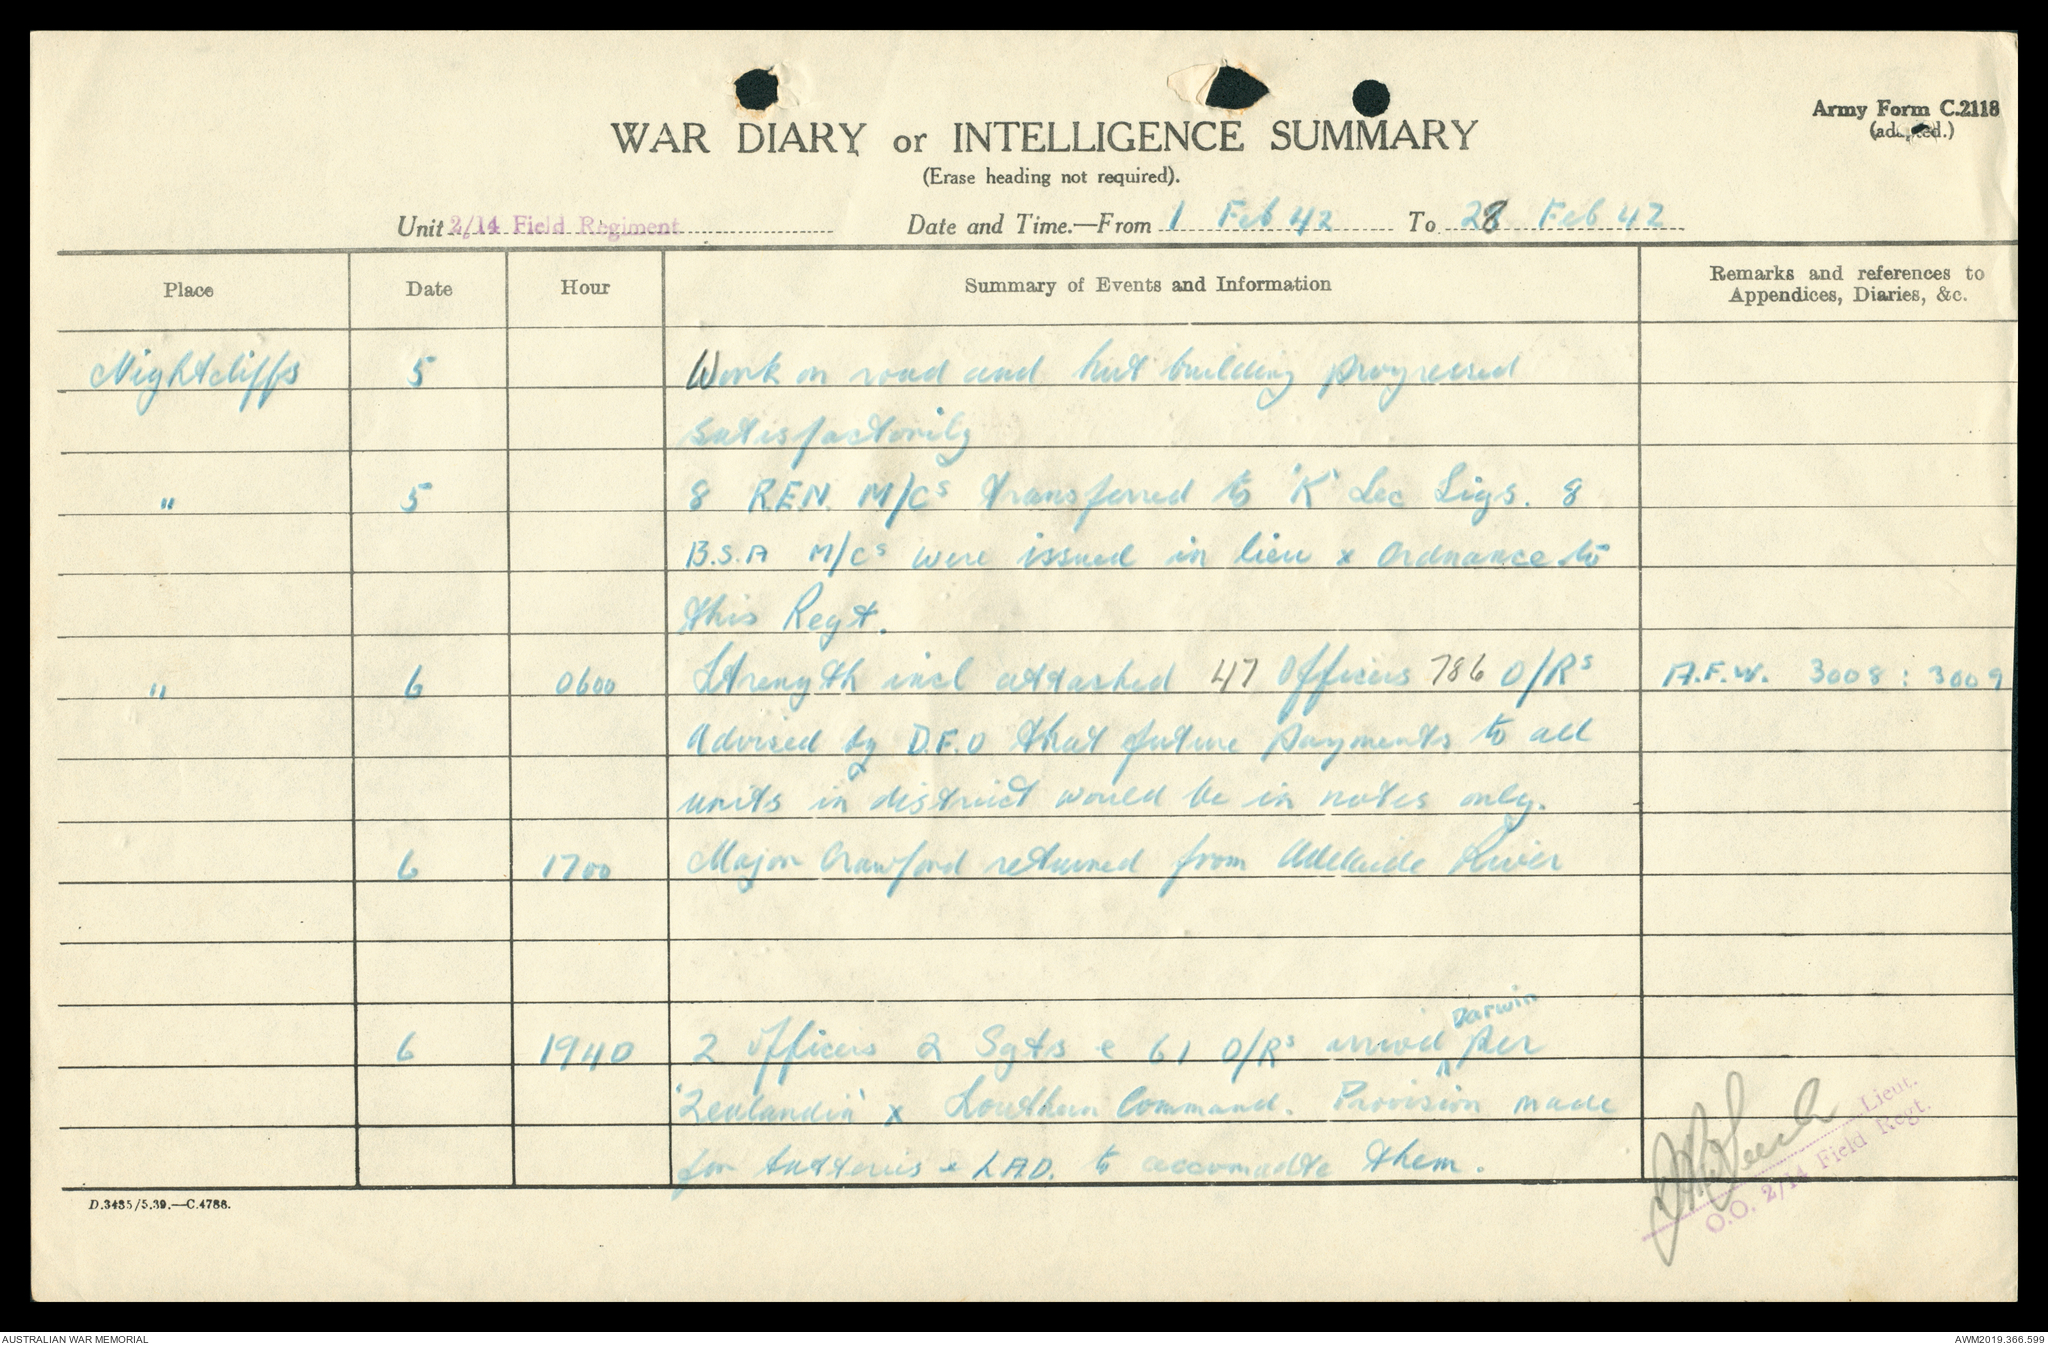 Army Form C.2118
(adapted.)
WAR DIARY or INTELLIGENCE SUMMARY
(Erase heading not required).
Unit 2/14 Field Regiment Date and Time.—From 1 Feb 42 To 28 Feb 42
Place Date Hour Summary of Events and Information Remarks and references to
Appendices, Diaries, &c.
Nightcliffs 5 Work on road and hut building progressed
satisfactorily
" 5 8 R.E.N. M/Cs transferred to 'K' Sec Sigs. 8
B.S.A M/Cs were issued in lieu x Ordnance to
this Regt.
" 6 0600 Strength incl attached 47 Officers 786 O/Rs A.F.W. 3008 : 3009
Advised by D.F.O that future payments to all
units in district would be in notes only.
6 1700 Major Crawford returned from Adelaide River
Darwin
6 1940 2 Officers 2 Sgts & 61 O/Rs arrived ^ per
'Zealandia' x Southern Command. Provision made
for batteries & L.A.D. to accomadte them.
Lieut.
O.O. 2/14 Field Regt.
D.3435/5.39.—C.4788.
AUSTRALIAN WAR MEMORIAL AWM2019.366.599